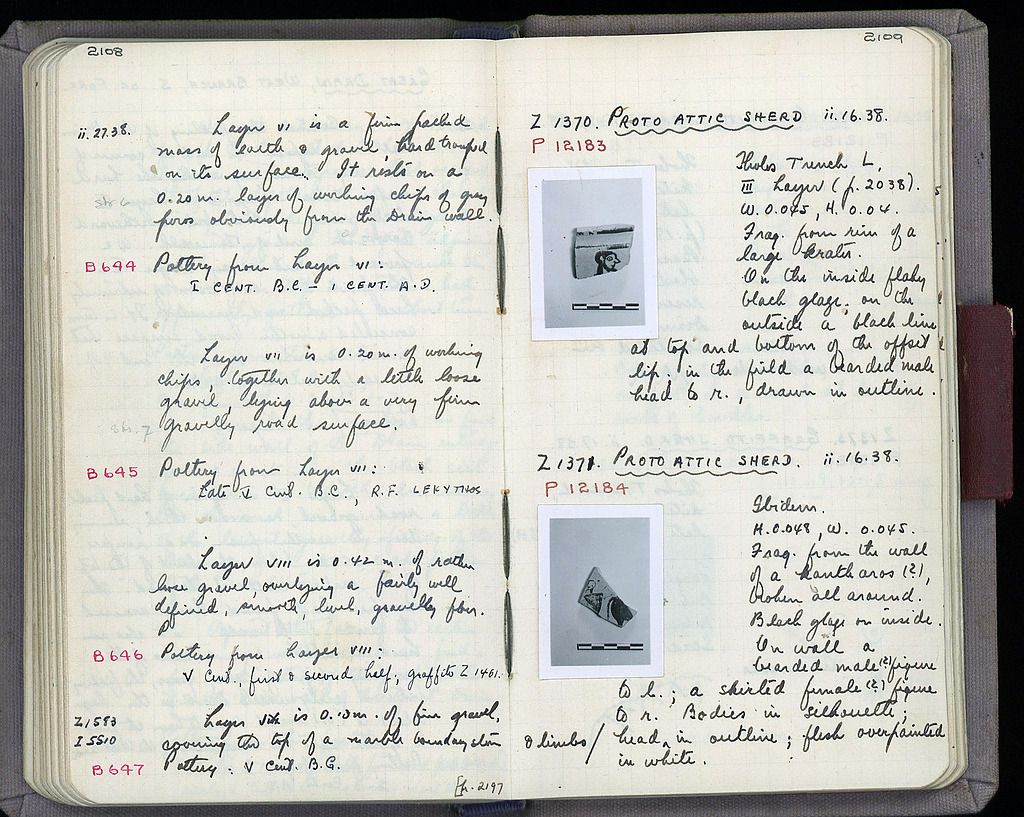 2108
ii.27.38. Layer VI is a firm packed
mass of earth & gravel, hard tramped
on its surface. It rests on a
0.20 m. layer of working chips of gray
poros obviously from the Drain wall.
B 644 Pottery from Layer VI:
I CENT. B.C. – I CENT. A.D.
Layer VII is 0.20 m. of working
chips, together with a little loose
gravel, lying above a very firm
gravelly road surface.
B 645 Pottery from Layer VII:
Late V Cent. B.C., R.F. LEKYTHOS
Layer VIII is 0.42 m. of rather
loose gravel, overlying a fairly well
defined, smooth, level, gravelly floor.
B 646 Pottery from Layer VIII:
V Cent., first & second half; graffito Z 1461.
Z 1583 Layer is m. of fine gravel,
I 5510 covering the top of a marble boundary stone
B 647 Pottery: V Cent. B.C.
[p. 2197
2109
Z 1370. PROTO ATTIC SHERD ii.16.38.
P 12183
Tholos Trench L,
III Layer (p. 2038).
W. 0.045, H. 0.04.
Frag. from rim of a
large krater.
On the inside flaky
black glaze; on the
outside a black line
at top and bottom of the offset
lip; in the field a bearded male
head to r., drawn in outline.
Z 1371. PROTO ATTIC SHERD. ii.16.38.
P 12184
Ibidem.
H. 0.048, W. 0.045.
Frag. from the wall
of a kantharos (?),
broken all around.
Black glaze on inside.
On wall a
bearded male (?) figure
to l.; a skirted female (?) figure
to r. Bodies in silhouette;
& limbs / head, in outline; flesh overpainted
in white.